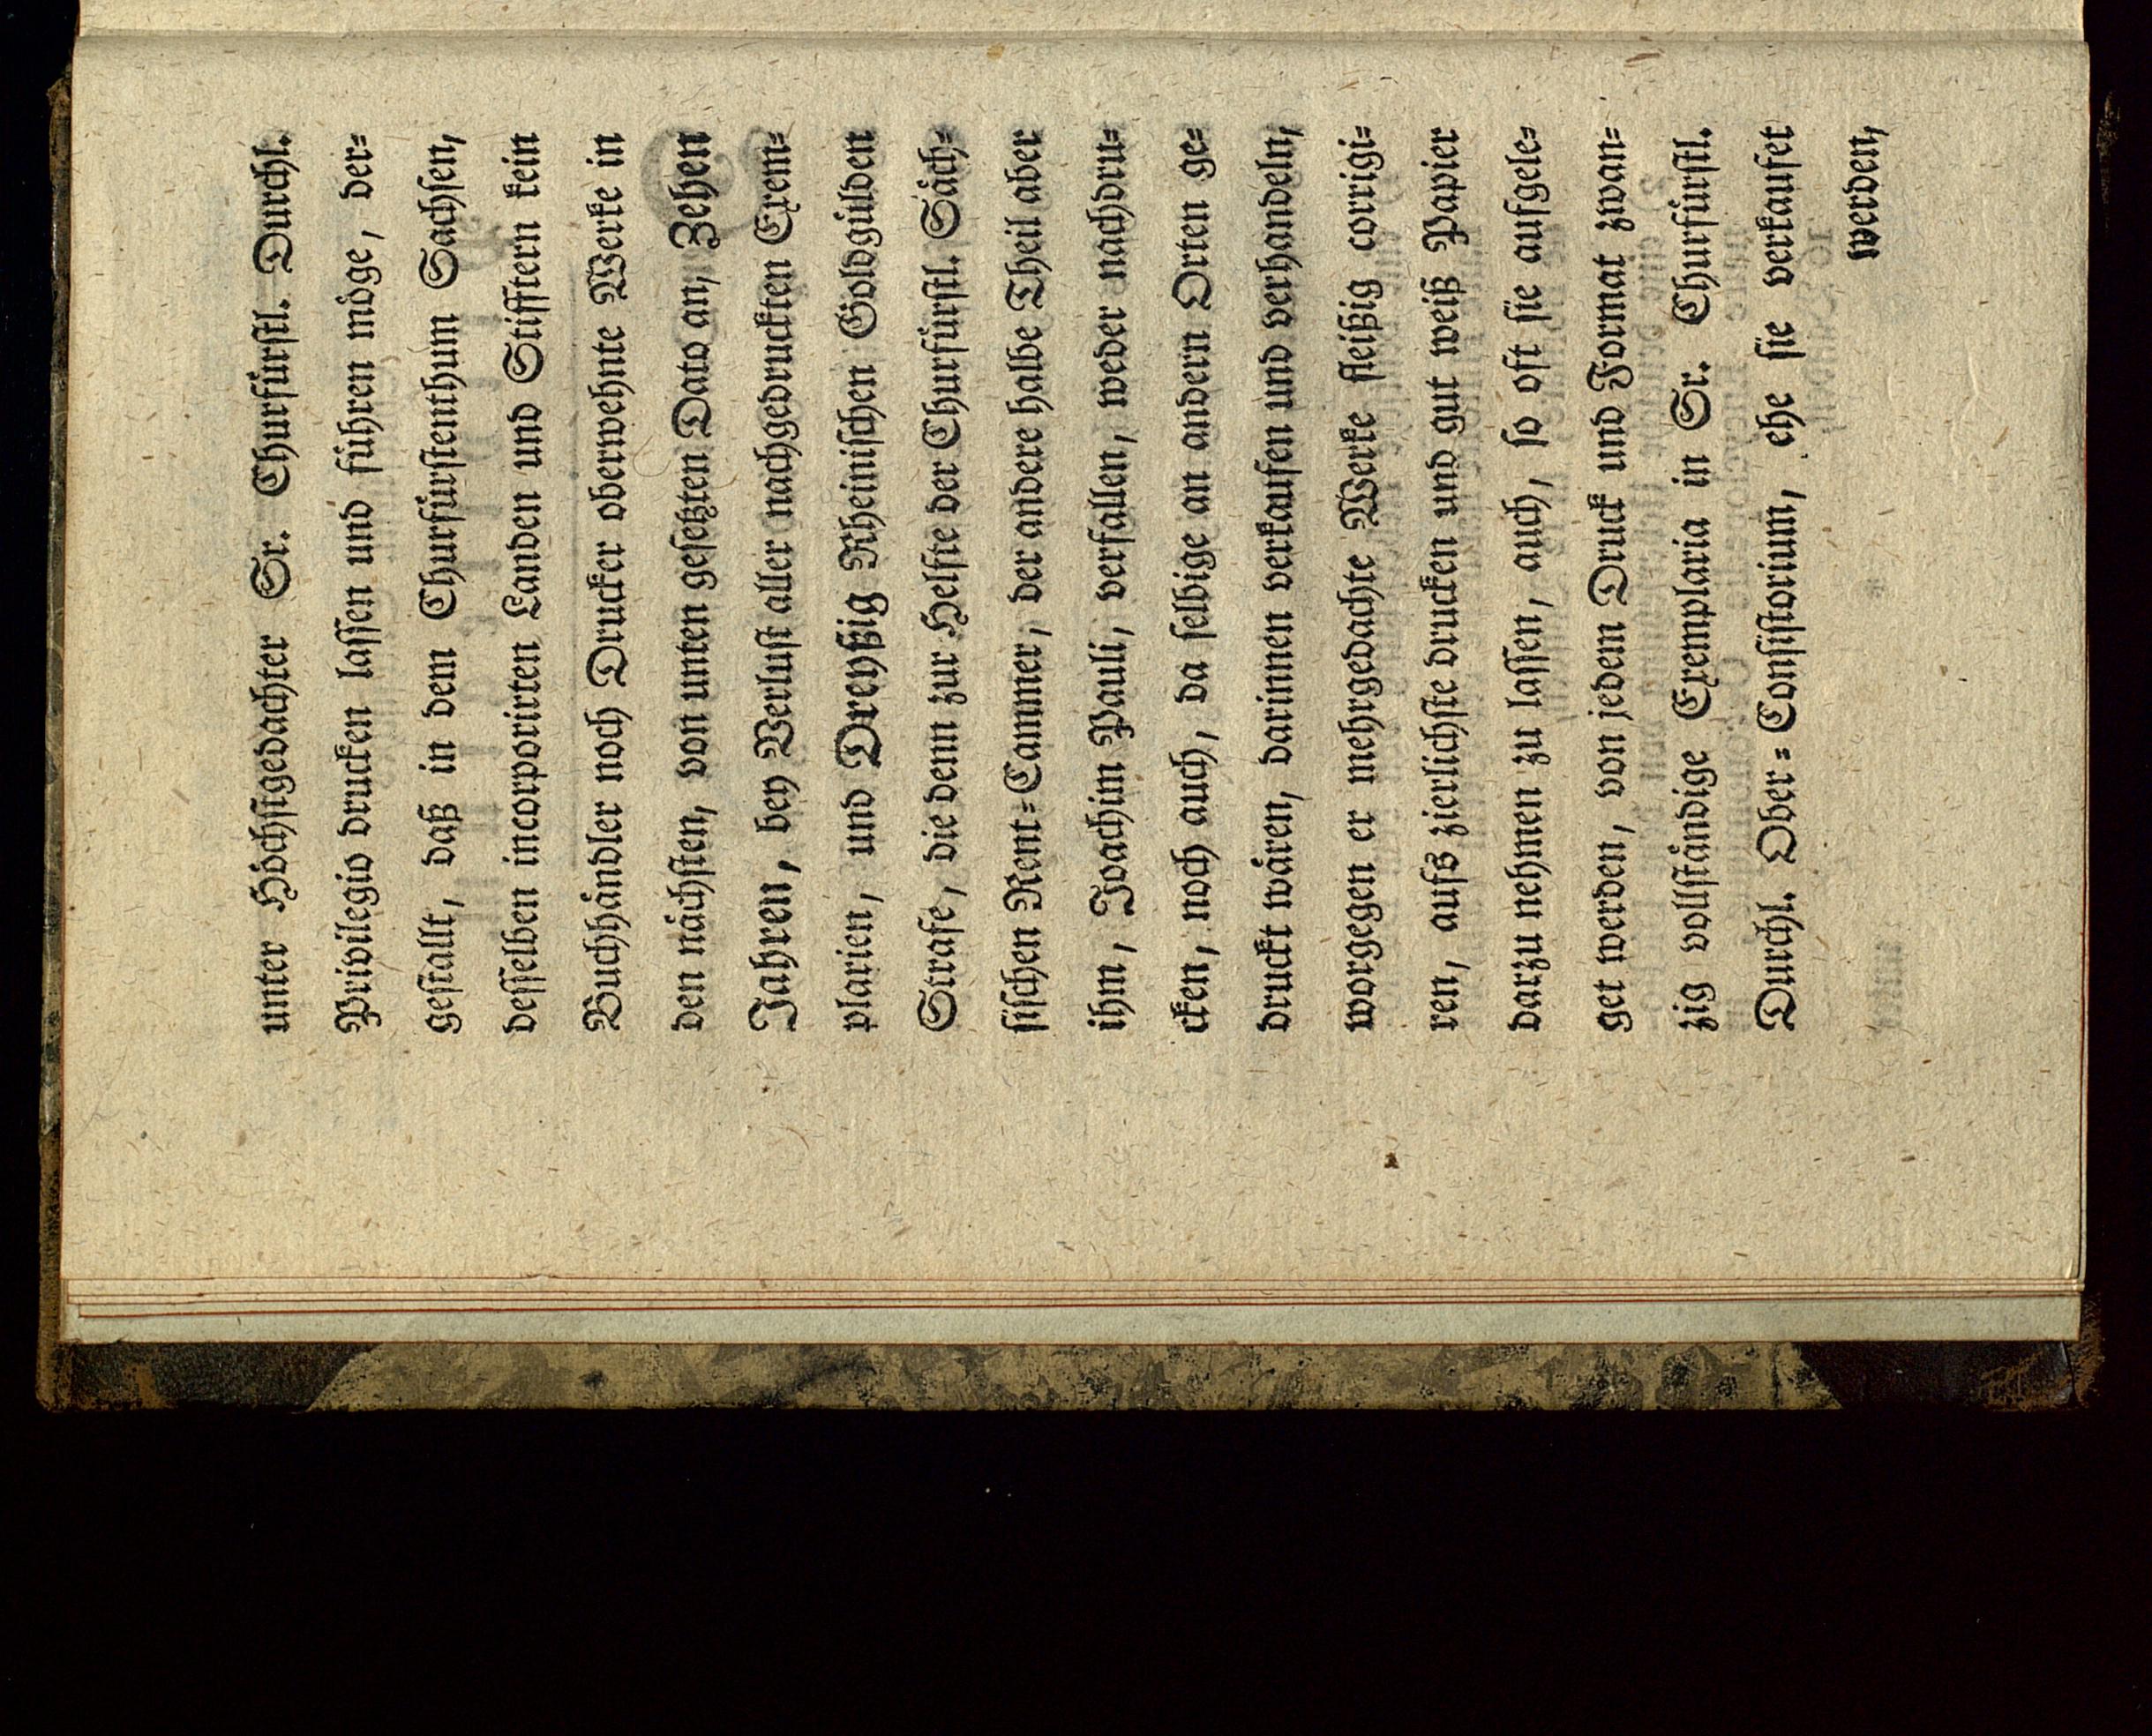 unter Höchſtgedachter Sr. Churfürſtl. Durchl.
Privilegio drucken laſſen und führen möge, der=
geſtallt, daß in dem Churfürſtenthum Sachſen,
deſſelben incorporirten Landen und Stifftern kein
Buchhändler noch Drucker oberwehnte Werke in
den nächſten, von unten geſetzten Dato an, Zehen
Jahren, bey Verluſt aller nachgedruckten Exem=
plarien, und Dreyßig Rheiniſchen Goldgülden
Strafe, die denn zur Helfte der Churfürſtl. Säch=
ſiſchen Rent=Cammer, der andere halbe Theil aber
ihm, Joachim Pauli, verfallen, weder nachdru=
cken, noch auch, da ſelbige an andern Orten ge=
druckt wären, darinnen verkaufen und verhandeln,
worgegen er mehrgedachte Werke fleißig corrigi=
ren, aufs zierlichſte drucken und gut weiß Papier
darzu nehmen zu laſſen, auch, ſo oft ſie aufgele=
get werden, von jedem Druck und Format zwan=
zig vollſtändige Exemplaria in Sr. Churfürſtl.
Durchl. Ober=Conſiſtorium, ehe ſie verkaufet
werden,